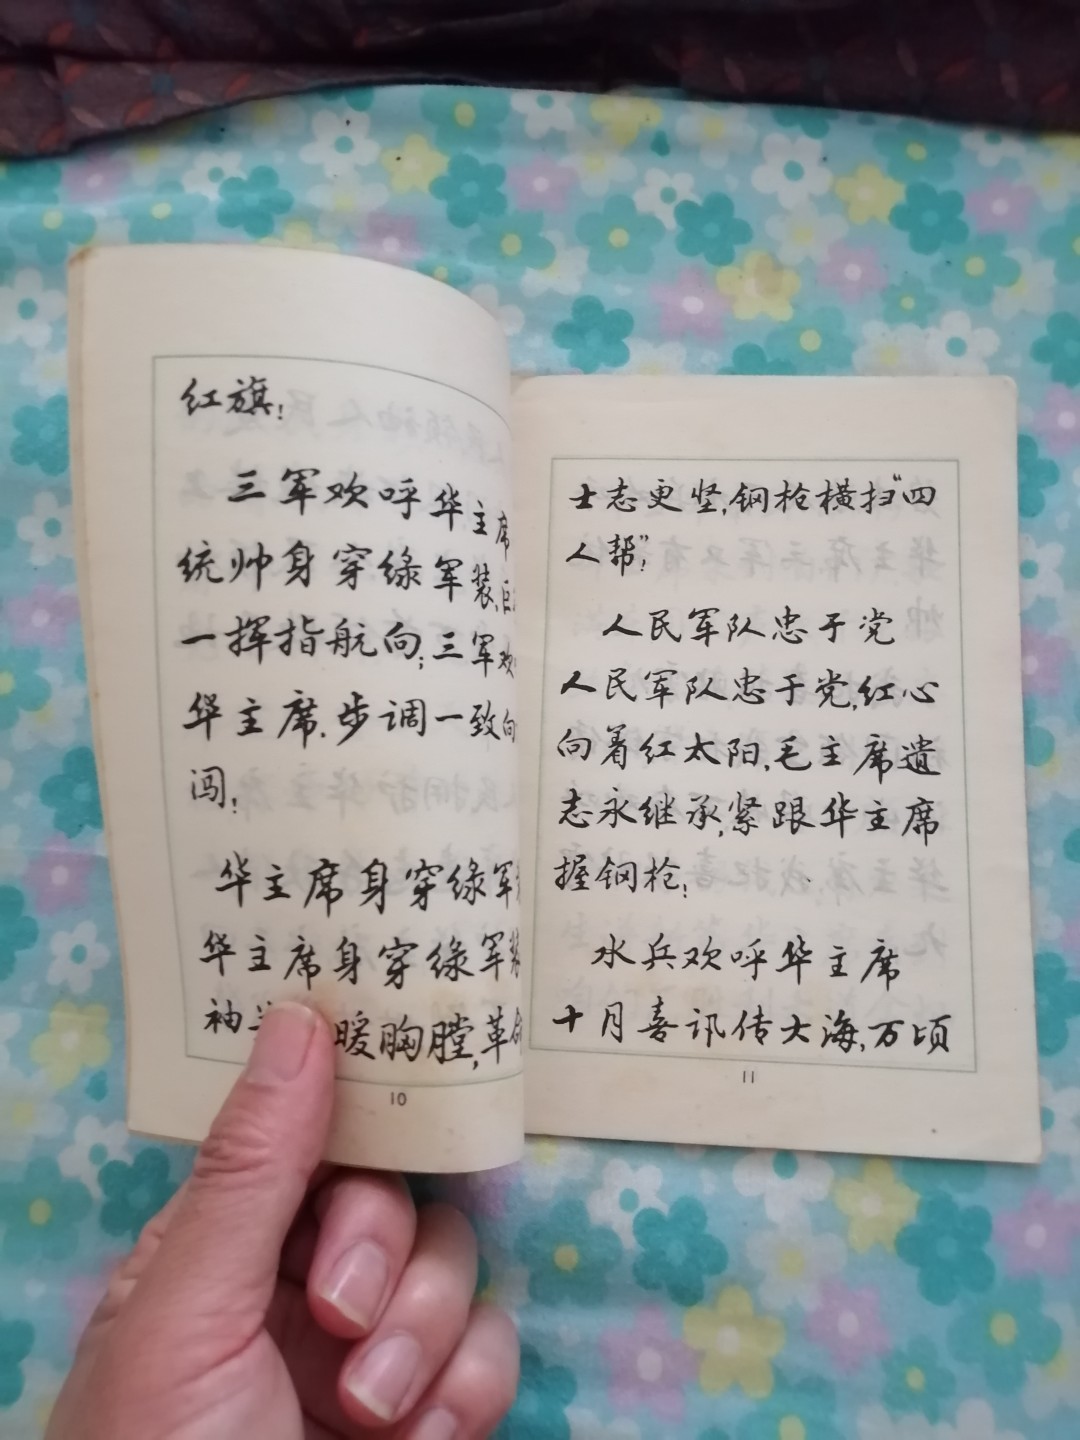 红旗!
三军欢呼华主席
统帅身穿绿军装,巨
一挥指航向;三军欢
华主席,步调一致向
闯!
华主席身穿绿军
华主席身穿绿军装
袖 暖胸膛,革命
10
士志更坚,钢枪横扫“四
人帮”!
人民军队忠于党
人民军队忠于党,红心
向着红太阳,毛主席遗
志永继承,紧跟华主席
握钢枪!
水兵欢呼华主席
十月喜讯传大海,万顷
11